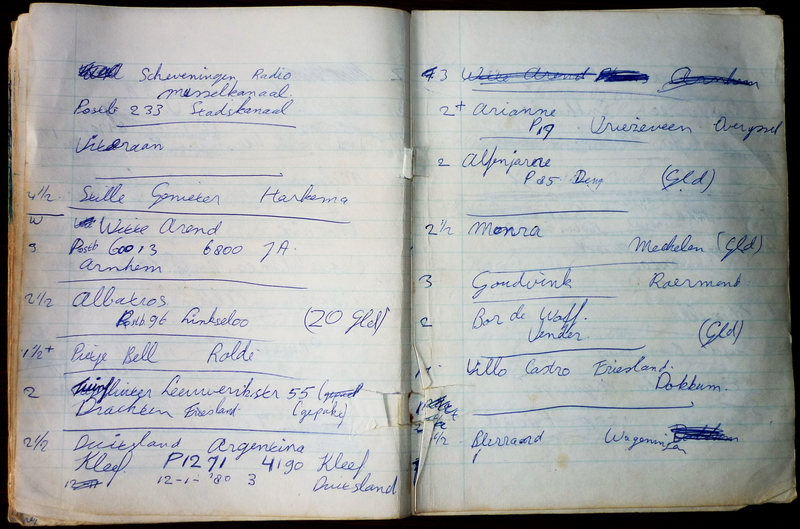 Scheveningen Radio
Musselkanaal
Postb 233 Stadskanaal
4 1/2 Stille Genieter Harkema
W Witte Arend
3 Postb 60013 6800 JA.
Arnhem
2 1/2 Albatros
Postb 96 Linkseloo (20 Gld)
1 1/2+ Pietje Bell Rolde
2 Leeuwerikstr 55
Drachten Friesland (gepakt)
2 1/2 Duitsland Argentina
Kleef P1271 4190 Kleef
12-1-'80 3 Duitsland
3 Witte Arend Arnhem
2+ Arianne
P19 Vriezeveen Overijssel
2 Alfenjarone
P 85 (Gld)
2 1/2 Monza
Mechelen (Gld)
3 Goudvink Roermond
2 Bor de Wolf.
(Gld)
Villo Castro Friesland.
Dokkum.
1/2 Wageningen